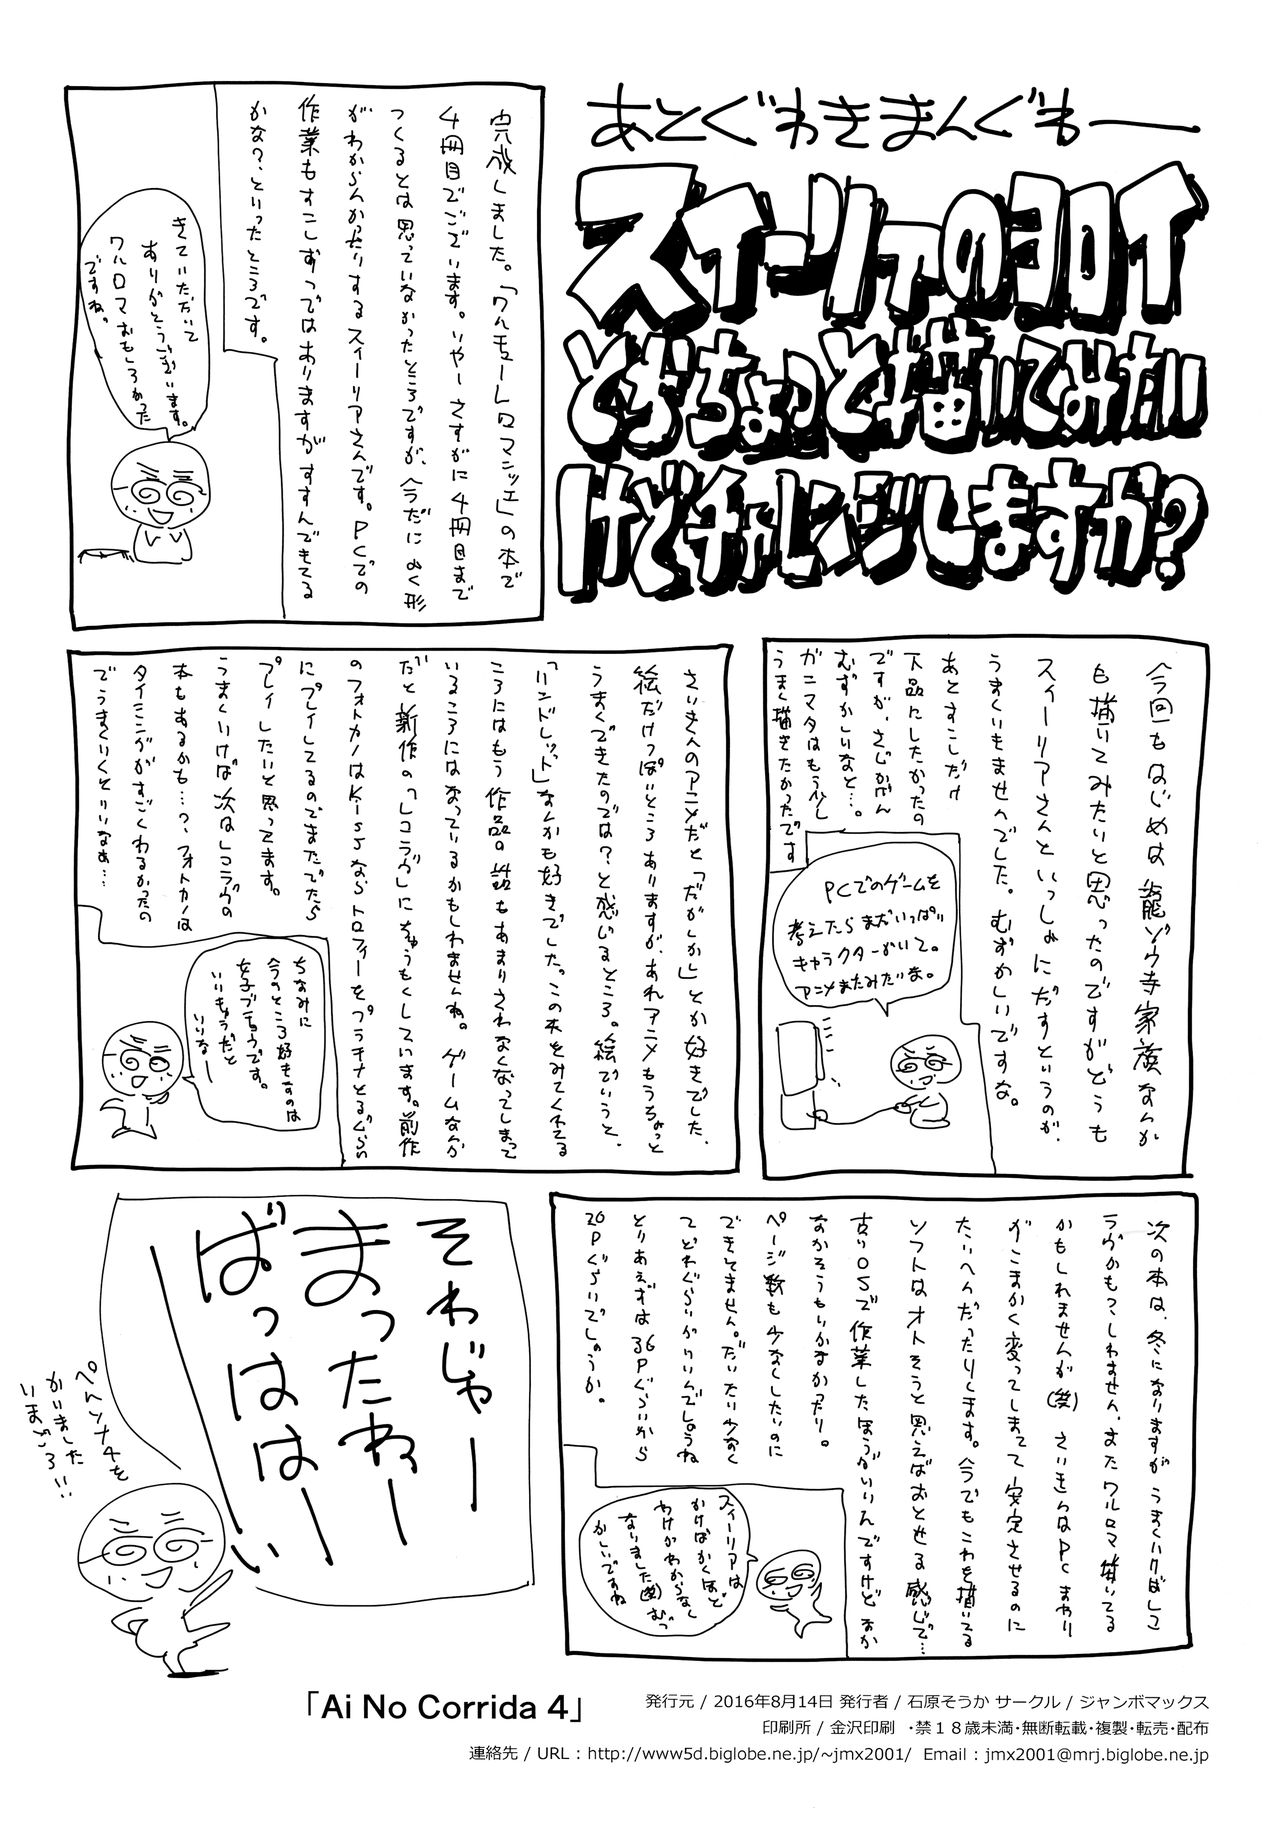 あとぐわきまんぐもー
スイーリァのヨロイ
とかちょっと描いてみたい
けどチャレンジしますか?
完成しました。「ワルキューレロマンツェ」の本で
4冊目でございます。いやーさすがに4冊目まで
つくるとは思っていなかったところですが、今だによく形
がわからんかったりするスィーリアさんです。PCでの
作業もすこしずつではありますがすすんでもてる
かな?、といったところです。
きていただいて
ありがとうございます。
ワルロマおもしろかった
ですね。
今回もはじめは龍ゾウ寺家族なんか
も描いてみたいと思ったのですがどうも
スィーリアさんといっしょにだすというのが、
うまくいきませんでした。むずかしいですな。
あとすこしだけ
下品にしたかったの
ですが、さじかげん
むずかしいなと…。
ガニマタはもう少し
うまく描きたかったです
PCでのゲームを
考えたらまだいっぱい
キャラクターがいて。
アニメまたみたいな。
さいきんのアニメだと「だがしかし」とか好きでした、
絵だけっぽいところありますが、あれアニメもうちょっと
うまくできたのでは?と感じるところ。絵でいうと、
「ハンドレッド」なんかも好きでした。この本をみてくれてる
ころにはもう作品の話もあまりされなくなってしまって
いるころにはなっているかもしれませんね。ゲームなんか
だと新作の「レコラヴ」にちゅうもくしています。前作
のフォトカノはKissならトロフィーをプラチナとるぐらい
にプレイしてるのでまたでたら
プレイしたいと思ってます。
うまくいけば次はレコラヴの
本もあるかも…?、フォトカノは
タイミングがすごくわるかったの
でうまくいくといいなぁ…
ちなみに
今のところ好きなのは
女子プロデューです。
いいきょうだと
いいなー
次の本は、冬になりますがうまくいけばレコ
ラヴかもっしれません、またワルロマ描いてる
かもしれませんが(笑) さいきんはPCまわり
がこまかく変ってしまって安定させるのに
たいへんだったりします。今でもこれを描いてる
ソフトはオトそうと思えばおとせる感じで…
古いOSで作業したほうがいいんですけどなか
なかそうもいかなかったり。
ページ数も少なくしたいのに
できてません。だいたい少なく
てどれぐらいがいいんでしょうね
とりあえずは36Pぐらいから
20Pぐらいでしょうか。
スィーリアは
かけばかくほど
わけがわからなく
なりました(笑)むつ
かしいですね
それじゃー
まったねー
ばっはは―い
ペルソナ4を
かいました
いまごろ!!
「Ai No Corrida 4」
発行元 / 2016年8月14日 発行者 / 石原そうか サークル / ジャンボマックス
印刷所 / 金沢印刷 ・禁18歳未満・無断転載・複製・転売・配布
連絡先 / URL : http://www5d.biglobe.ne.jp/~jmx2001/ Email : jmx2001@mrj.biglobe.ne.jp